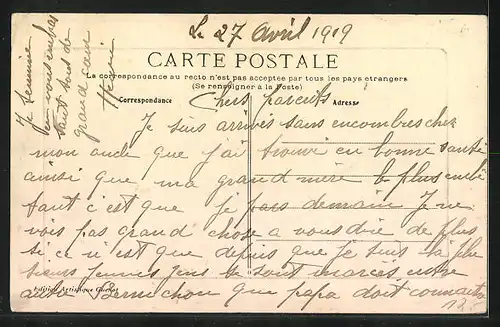 Le 27 Avril 1919
CARTE POSTALE
La correspondance au recto n'est pas acceptée par tous les pays étrangers
(Se renseigner à la Poste)
Correspondance
Adresse
Chers parents
Je suis arrivés sans encombres chez
mon oncle que j'ai trouvé en bonne santé
ainsi que ma grand mère le plus embê
tant c'est que je pars demain Je ne
vois pas grand chose a vous dire de plus
si ce n'est que depuis que je suis la plu
sieurs jeunes gens se sont mariés entre
autre que papa doit connaitre
Je termine
en vous embrassant
tout de
grand coeur
Henri
Edition Artistique